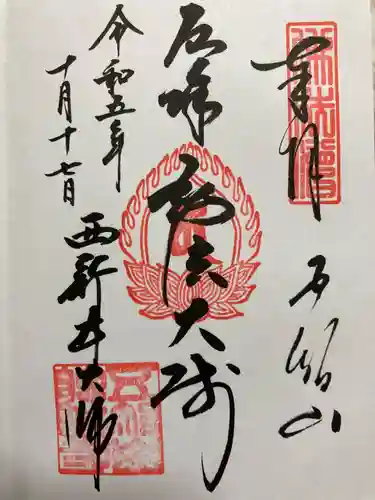 奉拝
五智山
厄除
弘法大師
令和五年
十月十七日
西新井大師